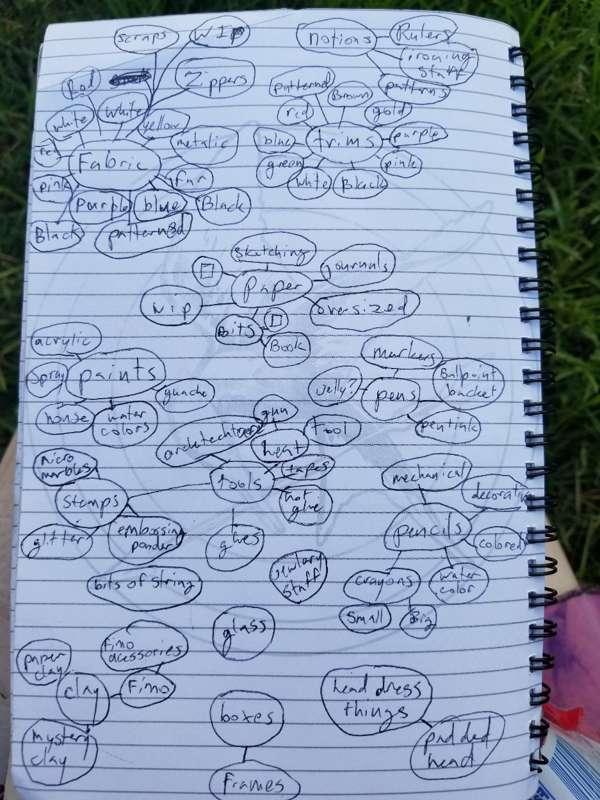 scraps
WIP
notions
Rulers
ironing
staff
patterns
Zippers
Red
white
White
yellow
metalic
Fabric
fur
pink
purple
blue
Black
Black
patterned
patterned
Brown
gold
red
blue
trims
purple
green
pink
white
Black
sketching
Journals
paper
WIP
oversized
Bits
Book
acrylic
spray
paints
guache
house
water
colors
markers
Jelly?
pens
Ballpoint
bucket
pen tink
gun
heat
tool
tapes
tools
hot
glue
glues
micro
marbles
stamps
glitter
embossing
powder
mechanical
decorative
pencils
colored
crayons
water
color
small
Big
bits of string
Jewlary
staff
glass
Fimo
acessories
paper
clay
clay
Fimo
mystery
clay
boxes
frames
head dress
things
padded
head